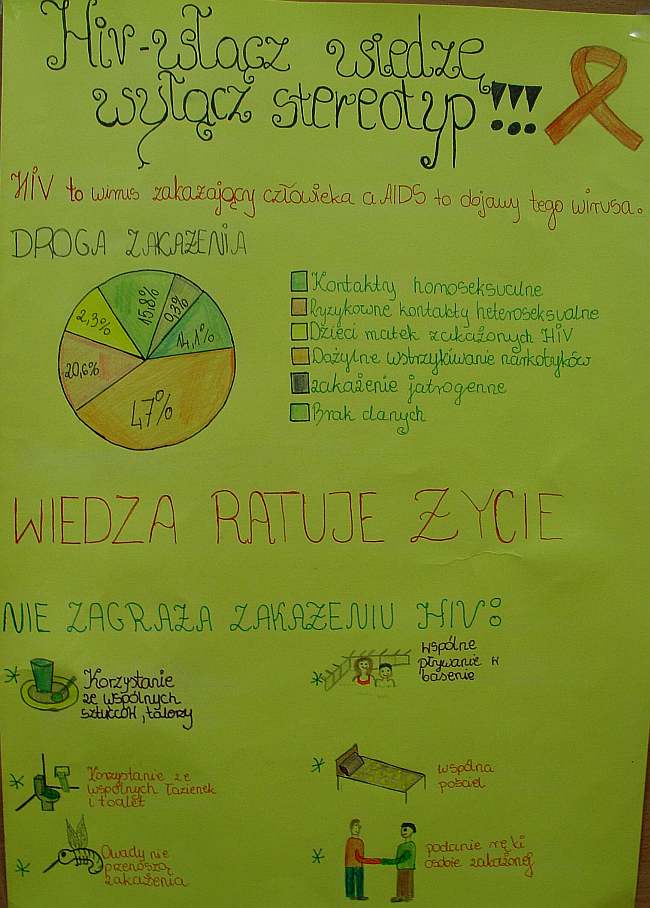 Hiv-włącz wiedzę
wyłącz stereotyp!!!
HIV to wirus zakażający człowieka a AIDS to objawy tego wirusa.
DROGA ZAKAŻENIA
15,8%
0,3%
2,3%
14,1%
20,6%
47%
Kontakty homoseksualne
Ryzykowne kontakty heteroseksualne
Dzieci matek zakażonych HIV
Dożylne wstrzykiwanie narkotyków
zakażenie jatrogenne
Brak danych
WIEDZA RATUJE ŻYCIE
NIE ZAGRAŻA ZAKAŻENIU HIV:
Korzystanie
ze wspólnych
sztućców, talerzy
wspólne
pływanie w
basenie
Korzystanie ze
wspólnych łazienek
i toalet
wspólna
pościel
Owady nie
przenoszą
zakażenia
podanie ręki
osobie zakażonej